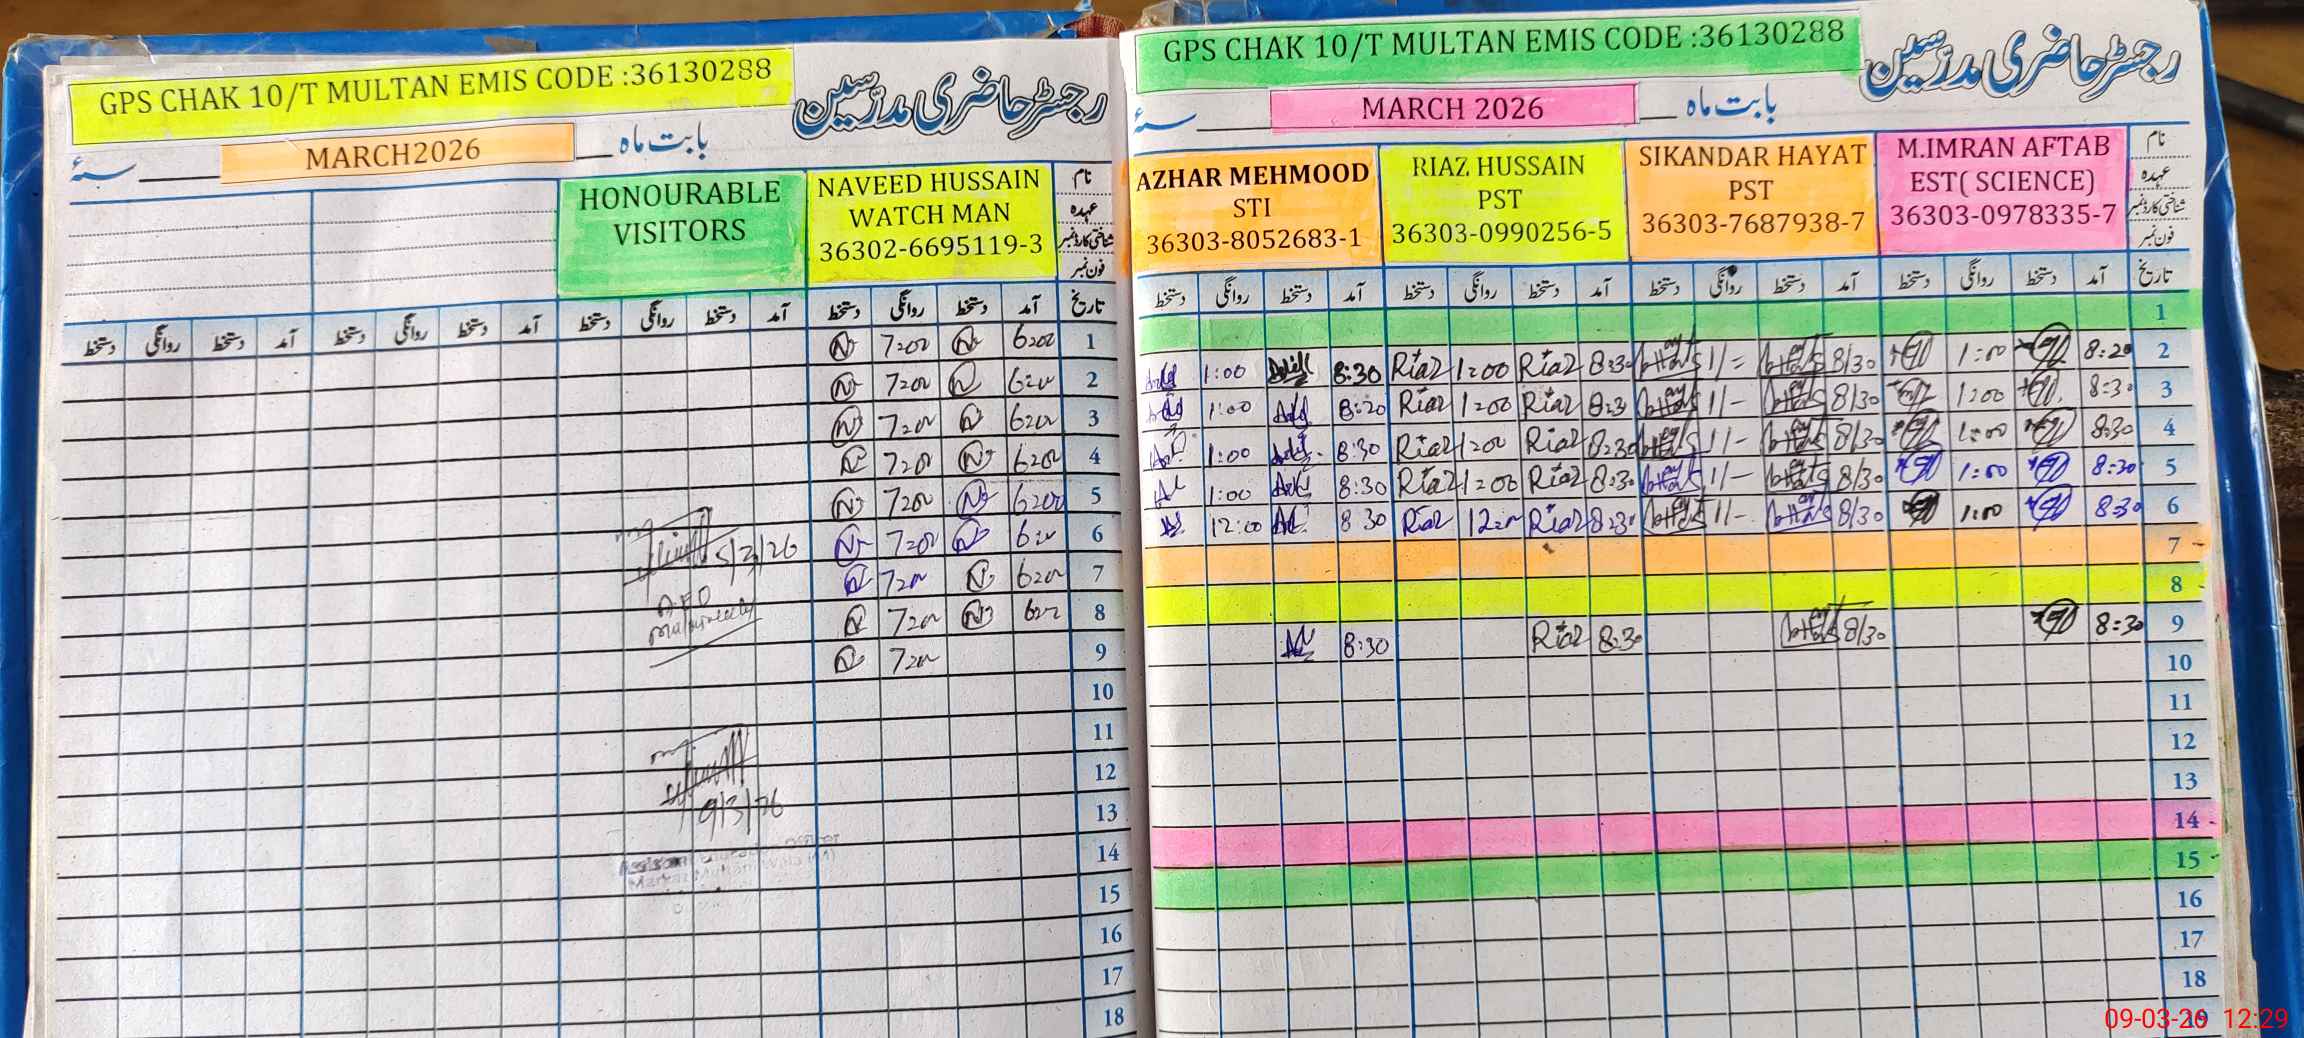 GPS CHAK 10/T MULTAN EMIS CODE :36130288
رجسٹر حاضری مدرّسین
MARCH2026
بابت ماہ
سنہ
HONOURABLE VISITORS
NAVEED HUSSAIN
WATCH MAN
36302-6695119-3
نام
عہدہ
شناختی کارڈ نمبر
فون نمبر
دستخط روانگی دستخط آمد دستخط روانگی دستخط آمد دستخط روانگی دستخط آمد دستخط روانگی دستخط آمد تاریخ
N 7:00 N 6:00 1
N 7:00 N 6:00 2
N 7:00 N 6:00 3
N 7:00 N 6:00 4
N 7:00 N 6:00 5
5/3/26 N 7:00 N 6:00 6
N 7:00 N 6:00 7
N 7:00 N 6:00 8
N 7:00 9
10
11
12
9/3/26 13
14
15
16
17
18
GPS CHAK 10/T MULTAN EMIS CODE :36130288
رجسٹر حاضری مدرّسین
MARCH 2026
بابت ماہ
سنہ
AZHAR MEHMOOD
STI
36303-8052683-1
RIAZ HUSSAIN
PST
36303-0990256-5
SIKANDAR HAYAT
PST
36303-7687938-7
M.IMRAN AFTAB
EST( SCIENCE)
36303-0978335-7
نام
عہدہ
شناختی کارڈ نمبر
فون نمبر
دستخط روانگی دستخط آمد دستخط روانگی دستخط آمد دستخط روانگی دستخط آمد دستخط روانگی دستخط آمد تاریخ
1
1:00 8:30 Riaz 1:00 Riaz 8:30 1/= 8/30 1:00 8:20 2
1:00 8:20 Riaz 1:00 Riaz 8:30 1/- 8/30 1:00 8:30 3
1:00 8:30 Riaz 1:00 Riaz 8:30 1/- 8/30 1:00 8:30 4
1:00 8:30 Riaz 1:00 Riaz 8:30 1/- 8/30 1:00 8:30 5
12:00 8 30 Riaz 12:00 Riaz 8:30 1/- 8/30 1:00 8:30 6
7
8
8:30 Riaz 8:30 8/30 8:30 9
10
11
12
13
14
15
16
17
18
19
09-03-26 12:29